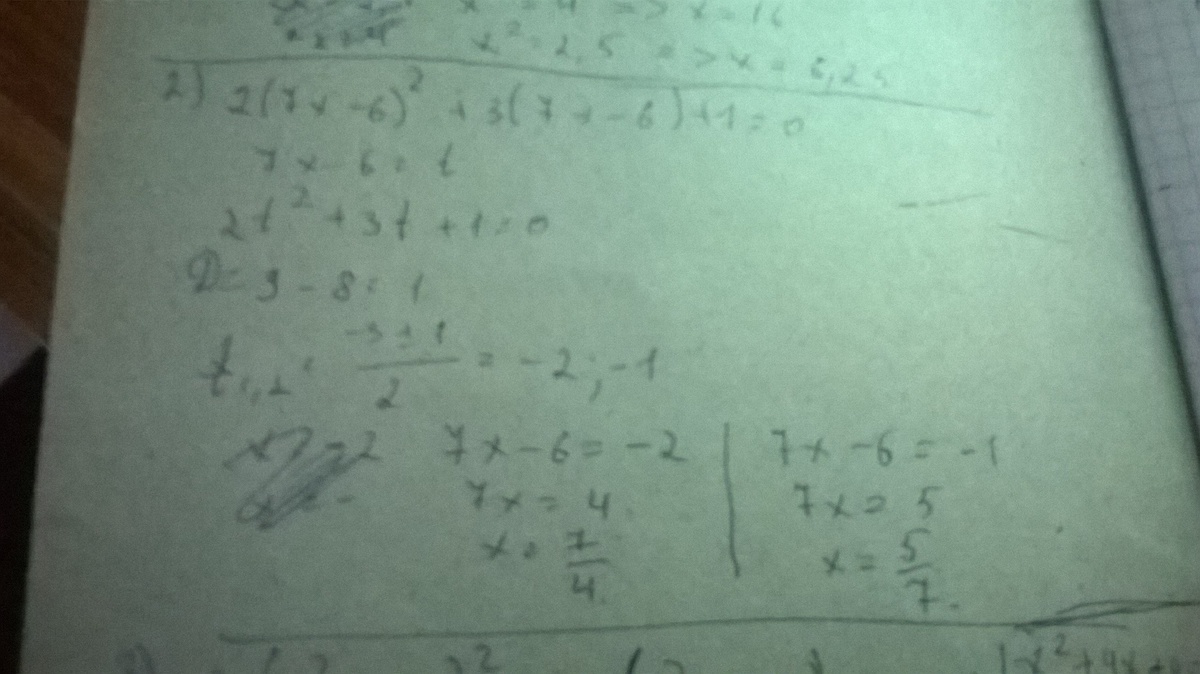 x = 4 => x = 16
x² = 2,5 => x = 6,25
2) 2(7x-6)² + 3(7x-6)+1=0
7x-6 = t
2t² + 3t + 1 = 0
D = 9 - 8 = 1
t₁,₂ = (-3±1)/2 = -2; -1
7x-6 = -2 | 7x-6 = -1
7x = 4 | 7x = 5
x = 7/4 | x = 5/7.
x²+4x+